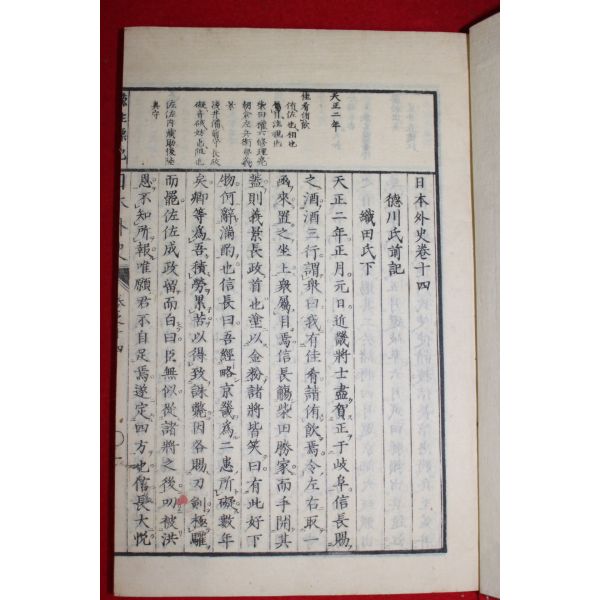 日本外史卷十四
德川氏前記
織田氏下
天正二年正月元日近畿將士盡賀正于岐阜信長賜
之酒酒三行謂衆曰我有佳肴請侑飲焉令左右取一
函來置之坐上衆屬目焉信長觴柴田勝家而手開其
蓋則義景長政首也塗以金粉諸將皆笑曰有此好下
物何辭滿酌也信長曰吾經略京畿爲二患所礙數年
矣卿等爲吾積勞累苦以得致誅斃因各賜刀劍極驩
而罷佐佐成政留而白曰臣無似從諸將之後叨被洪
恩不知所報唯願君不自足焉遂定四方也信長大悅
天正二年
佳肴侑飲
侑佐也相也
柴田權六修理亮
朝倉左兵衛督義
景
淺井備前守長政
礙音碍妨也阻也
佐佐內藏助後陸
奧守
日本外史
卷之十四